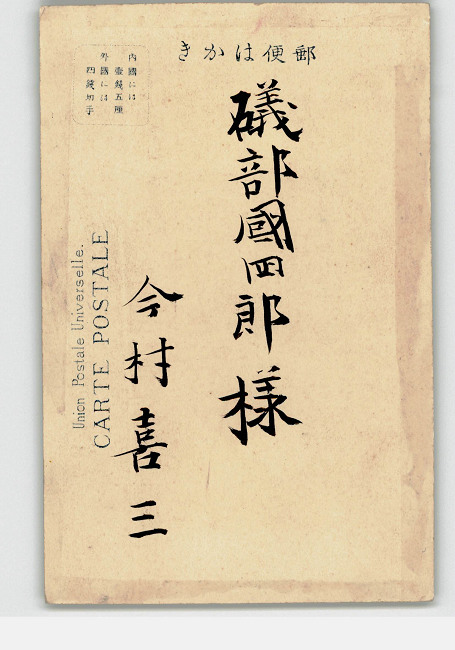 郵便はかき
内國には
壹錢五厘
外國には
四錢切手
礒部國四郎様
今村喜三
Union Postale Universelle.
CARTE POSTALE